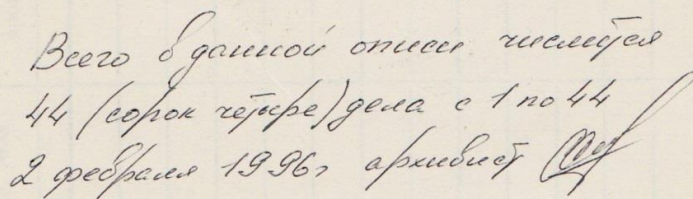 Всего в данной описи числится
44 (сорок четыре) дела с 1 по 44
2 февраля 1996г архивист